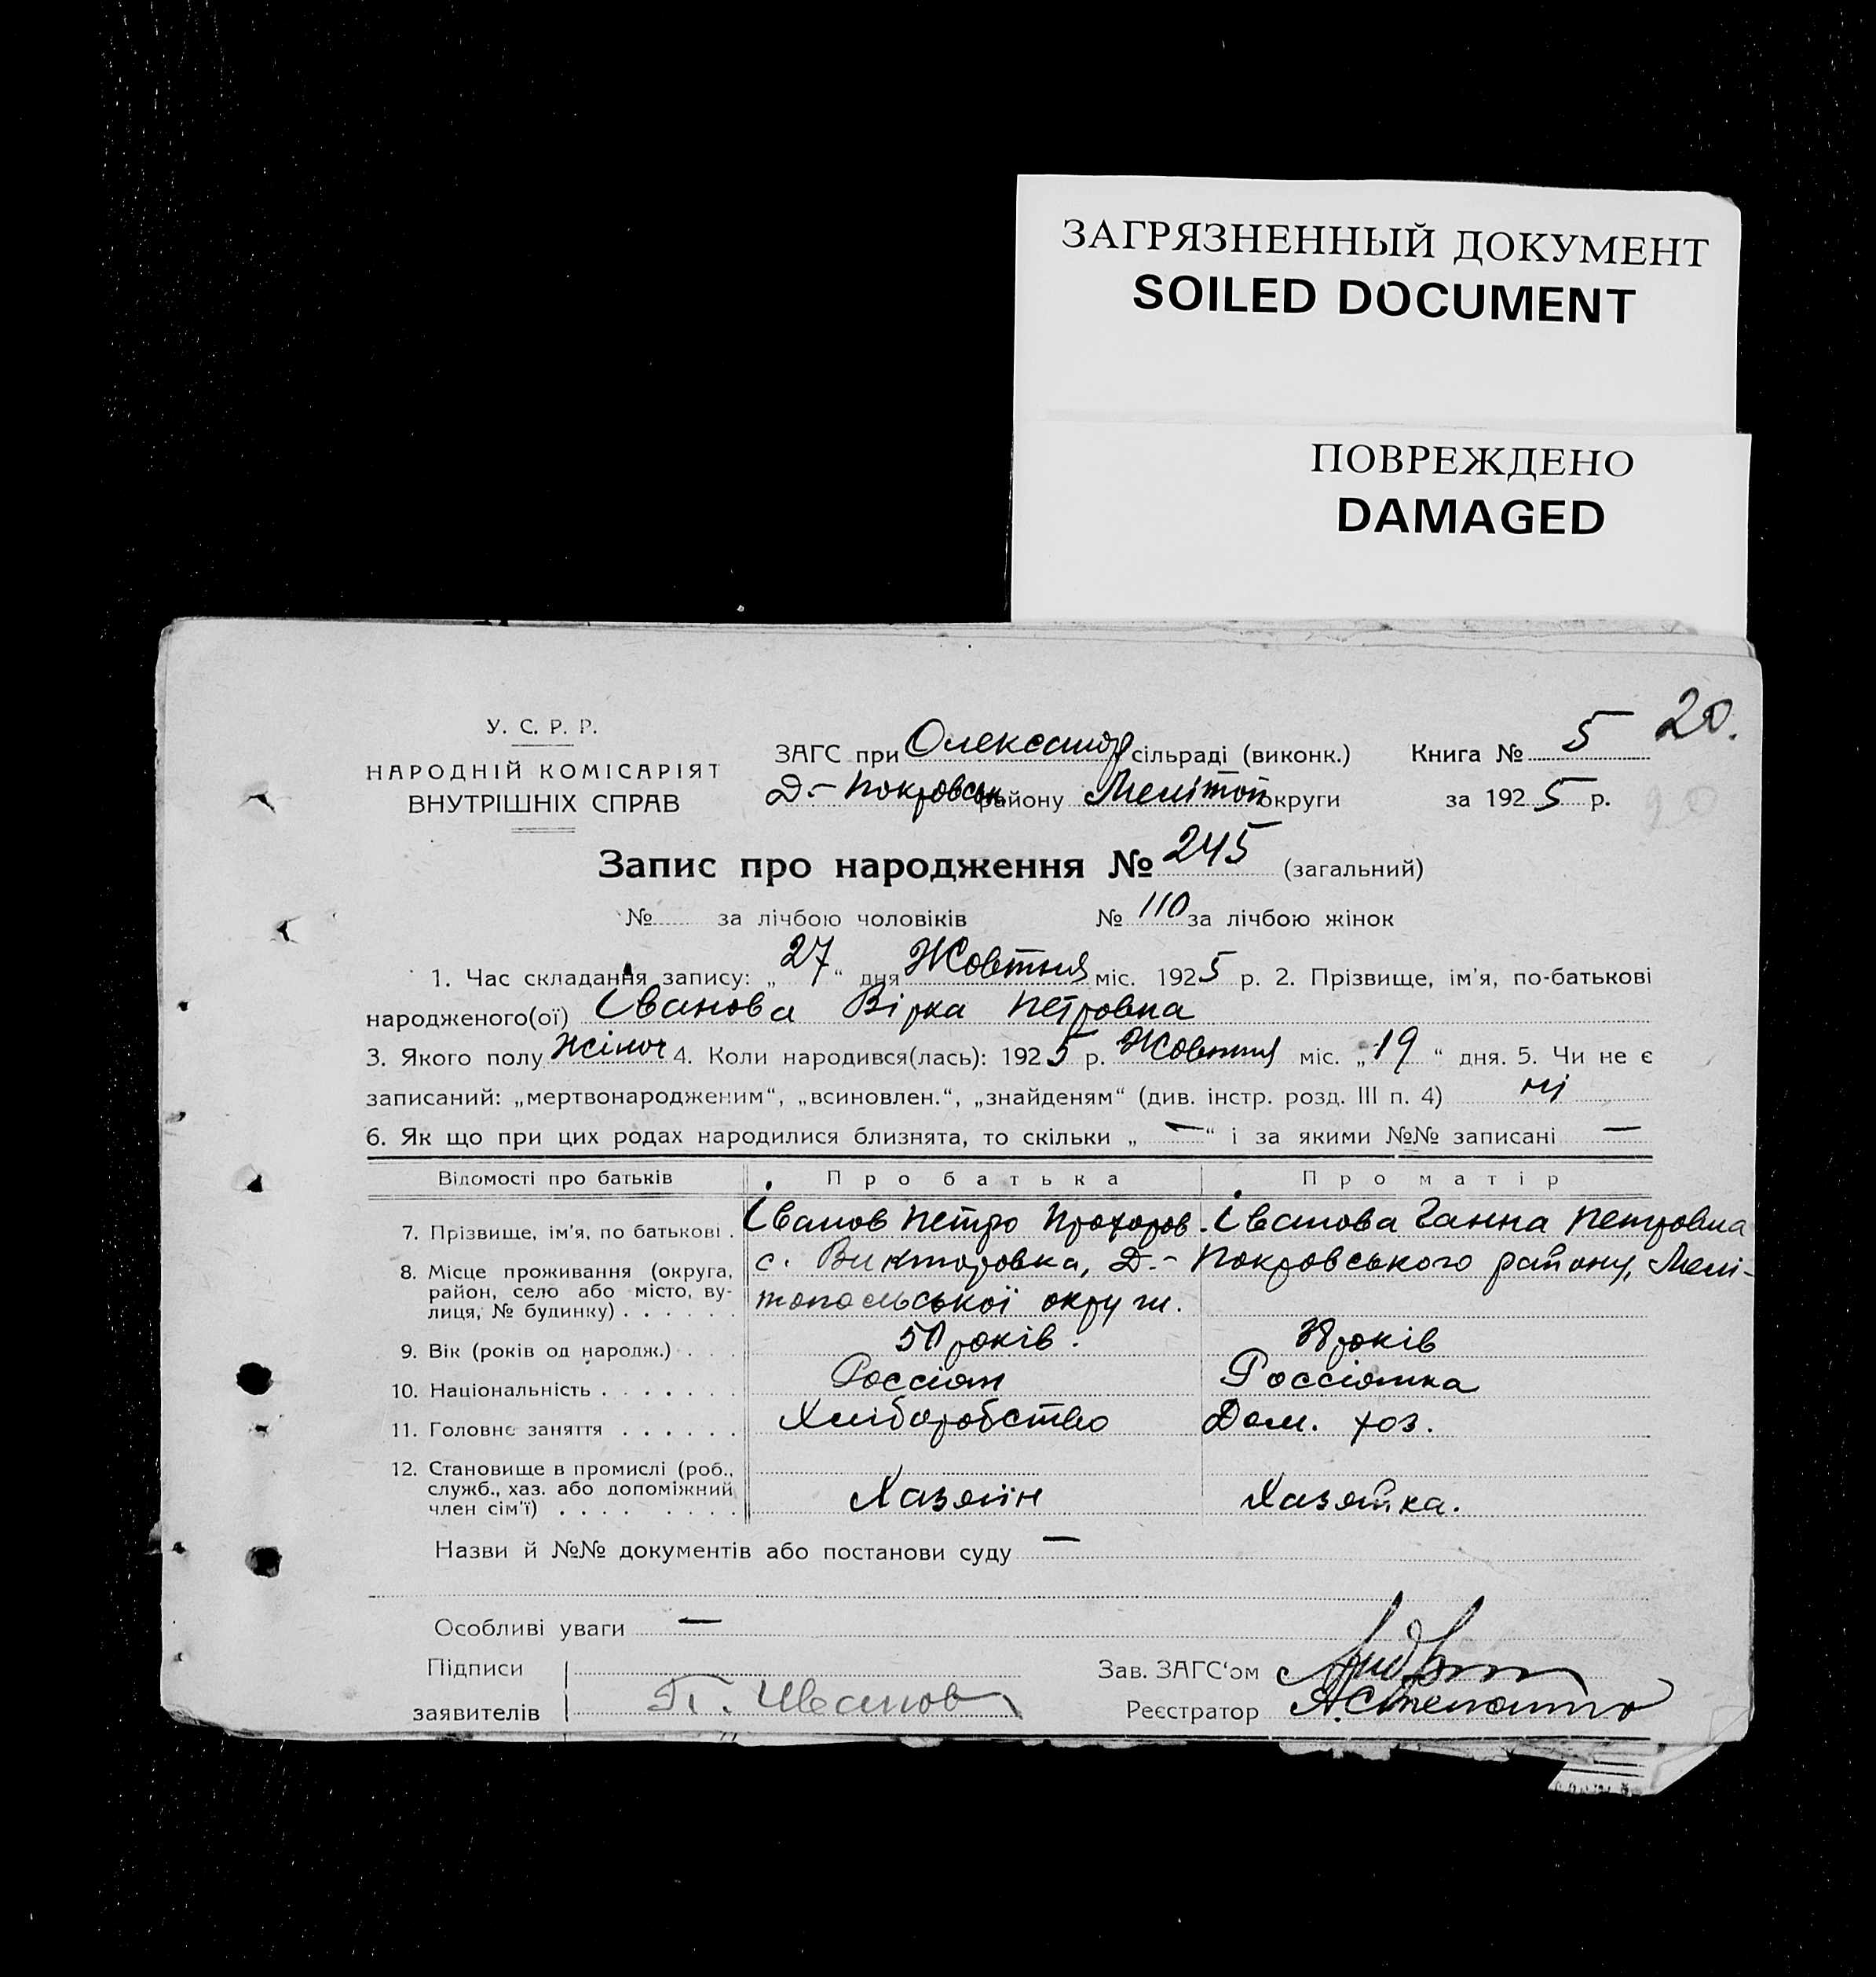 ЗАГРЯЗНЕННЫЙ ДОКУМЕНТ
SOILED DOCUMENT
ПОВРЕЖДЕНО
DAMAGED
20.
У. С. Р. Р.
НАРОДНІЙ КОМІСАРІЯТ
ВНУТРІШНІХ СПРАВ
ЗАГС при Олександр сільраді (виконк.) Книга № 5
Д.-Покровськ району Меліт̄оп округи за 1925 р.
20
Запис про народження № 245 (загальний)
№ за лічбою чоловіків № 110 за лічбою жінок
1. Час складання запису: „27“ дня Жовтня міс. 1925 р. 2. Прізвище, ім'я, по-батькові
народженого(ої) Іванова Вірка Петровна
3. Якого полу жіноч 4. Коли народився(лась): 1925 р. Жовтня міс. „19“ дня. 5. Чи не є
записаний: „мертвонародженим“, „всиновлен.“, „знайденям“ (див. інстр. розд. III п. 4) ні
6. Як що при цих родах народилися близнята, то скільки „—“ і за якими №№ записані —
Відомості про батьків Про батька Про матір
7. Прізвище, ім'я, по батькові . Іванов Петро Прохоров. Іванова Ганна Петровна
8. Місце проживання (округа, район, село або місто, ву-лиця, № будинку) . . . . . . с. Викторовка, Д.-Покровського району, Мелі-
топольської округи.
9. Вік (років од народж.) . . . 50 років. 38 років
10. Національність . . . . . . . Россіян Россіянка
11. Головне заняття . . . . . . Хліборобство Дом. хоз.
12. Становище в промислі (роб.,
служб., хаз. або допоміжний
член сім'ї) . . . . . . . . Хазяїн Хазяйка.
Назви й №№ документів або постанови суду —
Особливі уваги —
Підписи Зав. ЗАГС'ом
заявителів П. Иванов Реєстратор